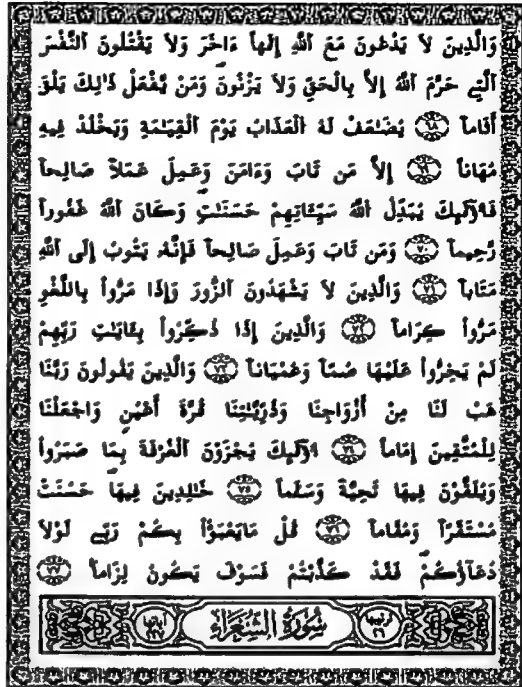 وَالَّذِينَ لاَ يَدْعُونَ مَعَ اَللَّهِ إِلَهاً ءَاخَرَ وَلاَ يَقْتُلُونَ اَلنَّفْسَ
اَلَّتِے حَرَّمَ اَللَّهُ إِلاَّ بِالْحَقِّ وَلاَ يَزْنُونَ وَمَنْ يَّفْعَلْ ذَٰلِكَ يَلْقَ
أَثَاماً ٦٨ يُضَٰعَفْ لَهُ اَلْعَذَابُ يَوْمَ اَلْقِيَٰمَةِ وَيَخْلُدْ فِيهِ
مُهَاناً ٦٩ إِلاَّ مَن تَابَ وَءَامَنَ وَعَمِلَ عَمَلاً صَالِحاً
فَأُوْلَٰٓئِكَ يُبَدِّلُ اَللَّهُ سَيِّئَاتِهِمْ حَسَنَٰتٍ وَكَانَ اَللَّهُ غَفُوراً
رَّحِيماً ٧٠ وَمَن تَابَ وَعَمِلَ صَالِحاً فَإِنَّهُ يَتُوبُ إِلَى اَللَّهِ
مَتَاباً ٧١ وَالَّذِينَ لاَ يَشْهَدُونَ اَلزُّورَ وَإِذَا مَرُّواْ بِاللَّغْوِ
مَرُّواْ كِرَاماً ٧٢ وَالَّذِينَ إِذَا ذُكِّرُواْ بِـَٔايَٰتِ رَبِّهِمْ
لَمْ يَخِرُّواْ عَلَيْهَا صُمّاً وَعُمْيَاناً ٧٣ وَالَّذِينَ يَقُولُونَ رَبَّنَا
هَبْ لَنَا مِنْ أَزْوَاجِنَا وَذُرِّيَّٰتِنَا قُرَّةَ أَعْيُنٍ وَاجْعَلْنَا
لِلْمُتَّقِينَ إِمَاماً ٧٤ أُوْلَٰٓئِكَ يُجْزَوْنَ اَلْغُرْفَةَ بِمَا صَبَرُواْ
وَيُلَقَّوْنَ فِيهَا تَحِيَّةً وَسَلَٰماً ٧٥ خَٰلِدِينَ فِيهَا حَسُنَتْ
مُسْتَقَرّاً وَمُقَاماً ٧٦ قُلْ مَا يَعْبَؤُاْ بِكُمْ رَبِّے لَوْلاَ
دُعَآؤُكُمْ فَقَدْ كَذَّبْتُمْ فَسَوْفَ يَكُونُ لِزَاماً ٧٧
ترتيبها ٢٦ سُورَةُ الشُّعَرَاءِ آياتها ٢٢٧